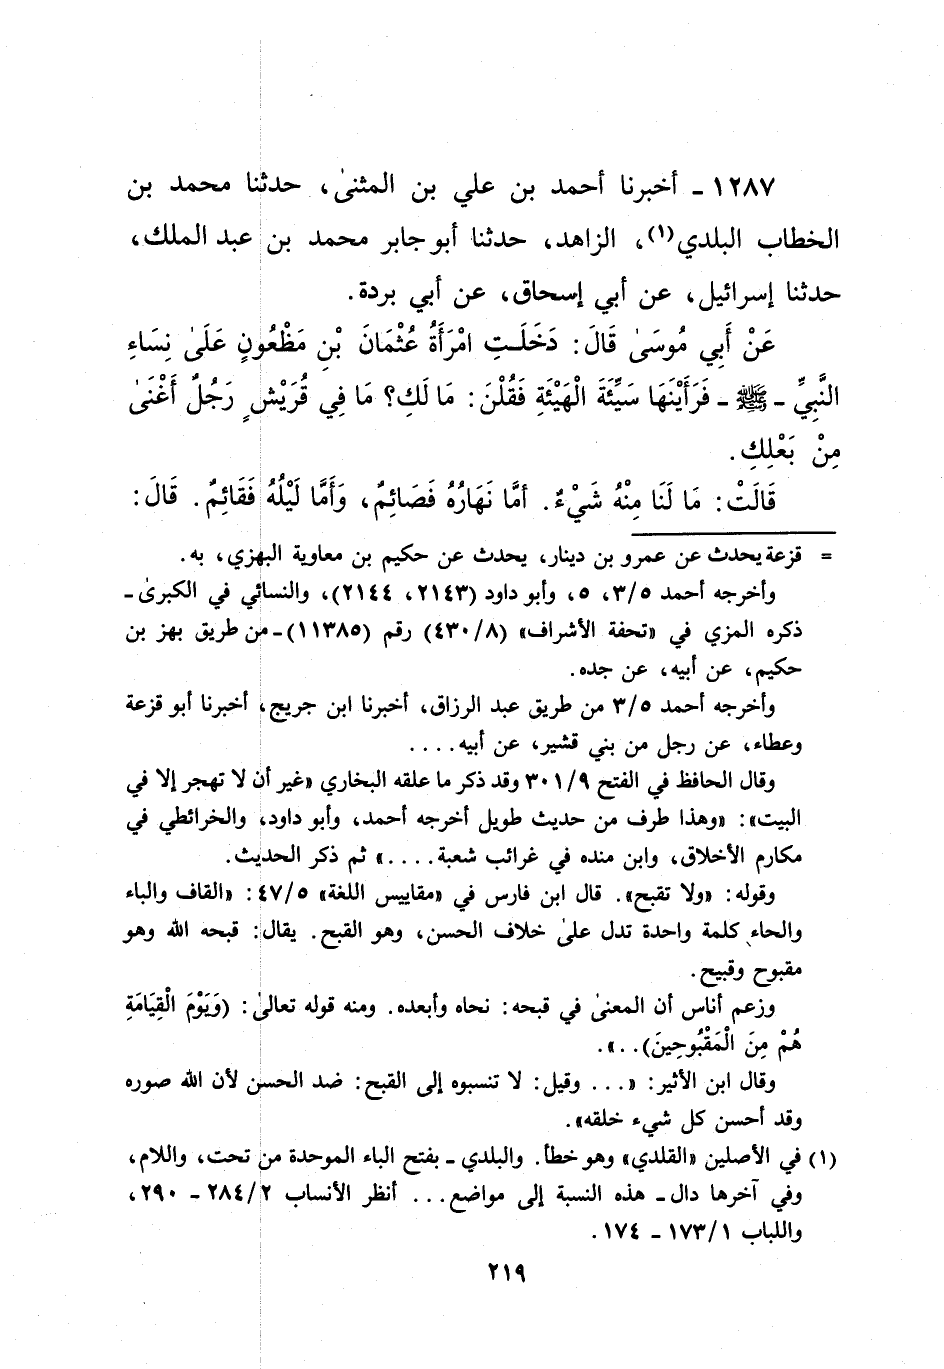 ١٢٨٧ - أخبرنا أحمد بن علي بن المثنىٰ، حدثنا محمد بن
الخطاب البلدي(١)، الزاهد، حدثنا أبو جابر محمد بن عبد الملك،
حدثنا إسرائيل، عن أبي إسحاق، عن أبي بردة.
عَنْ أَبِي مُوسَىٰ قَالَ: دَخَلَتِ امْرَأَةُ عُثْمَانَ بْنِ مَظْعُونٍ عَلَىٰ نِسَاءِ
النَّبِيِّ - ﷺ - فَرَأَيْنَهَا سَيِّئَةَ الْهَيْئَةِ فَقُلْنَ: مَا لَكِ؟ مَا فِي قُرَيْشٍ رَجُلٌ أَغْنَىٰ
مِنْ بَعْلِكِ.
قَالَتْ: مَا لَنَا مِنْهُ شَيْءٌ. أمَّا نَهَارُهُ فَصَائِمٌ، وَأَمَّا لَيْلُهُ فَقَائِمٌ. قَالَ:
= قزعة يحدث عن عمرو بن دينار، يحدث عن حكيم بن معاوية البهزي، به.
وأخرجه أحمد ٣/٥، ٥، وأبو داود (٢١٤٣، ٢١٤٤)، والنسائي في الكبرىٰ -
ذكره المزي في «تحفة الأشراف» (٤٣٠/٨) رقم (١١٣٨٥) - من طريق بهز بن
حكيم، عن أبيه، عن جده.
وأخرجه أحمد ٣/٥ من طريق عبد الرزاق، أخبرنا ابن جريج، أخبرنا أبو قزعة
وعطاء، عن رجل من بني قشير، عن أبيه....
وقال الحافظ في الفتح ٣٠١/٩ وقد ذكر ما علقه البخاري «غير أن لا تهجر إلا في
البيت»: «وهذا طرف من حديث طويل أخرجه أحمد، وأبو داود، والخرائطي في
مكارم الأخلاق، وابن منده في غرائب شعبة....» ثم ذكر الحديث.
وقوله: «ولا تقبح». قال ابن فارس في «مقاييس اللغة» ٤٧/٥: «القاف والباء
والحاء كلمة واحدة تدل علىٰ خلاف الحسن، وهو القبح. يقال: قبحه الله وهو
مقبوح وقبيح.
وزعم أناس أن المعنىٰ في قبحه: نحاه وأبعده. ومنه قوله تعالىٰ: (وَيَوْمَ الْقِيَامَةِ
هُمْ مِنَ الْمَقْبُوحِينَ)..».
وقال ابن الأثير: «... وقيل: لا تنسبوه إلى القبح: ضد الحسن لأن الله صوره
وقد أحسن كل شيء خلقه».
(١) في الأصلين «القلدي» وهو خطأ. والبلدي - بفتح الباء الموحدة من تحت، واللام،
وفي آخرها دال - هذه النسبة إلى مواضع... أنظر الأنساب ٢٨٤/٢ - ٢٩٠،
واللباب ١٧٣/١ - ١٧٤.
٢١٩